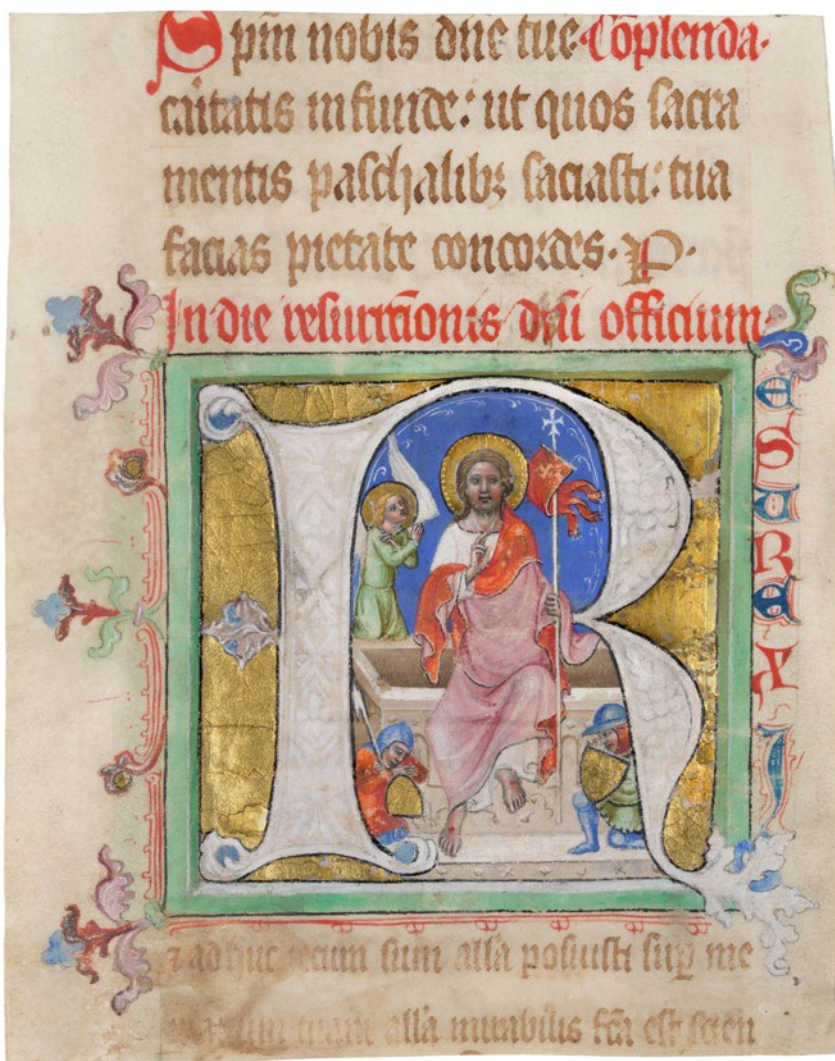 Sp̄m nobis dn̄e tue · Cōplenda ·
caritatis infunde: ut quos sacra
mentis paschalibꝫ saciasti: tua
facias pietate concordes · P ·
In die resurrctionis dn̄i officium
RESUREXI
⁊ adhuc tecum sum all̄a posuisti suꝑ me
manum tuam all̄a mirabilis fc̄a est scien